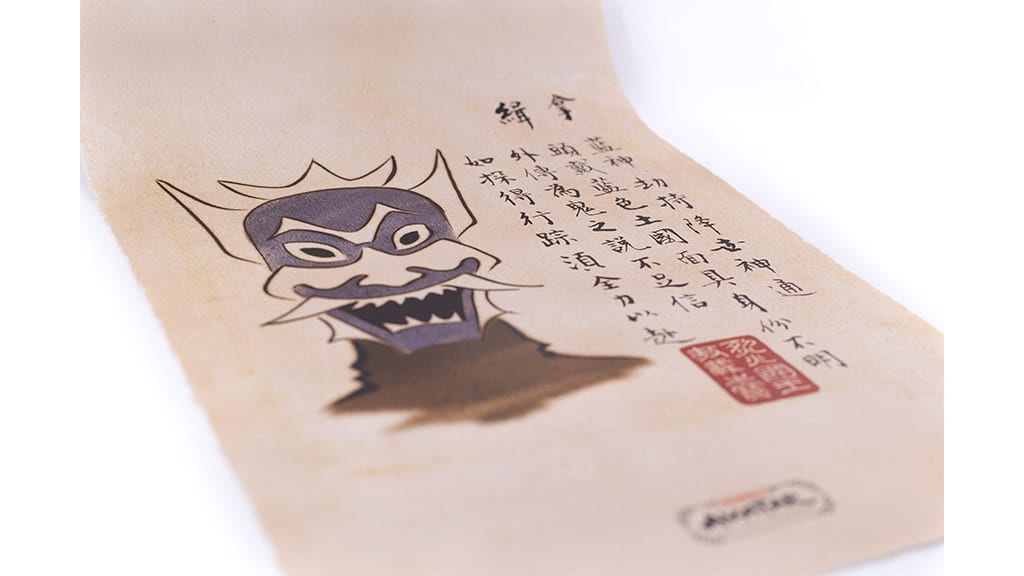 緝拿
藍神劫持降世神通
頭戴藍色土國面具身份不明
外傳為鬼之說不足信
如探得行踪湏全力以赴
AVATAR